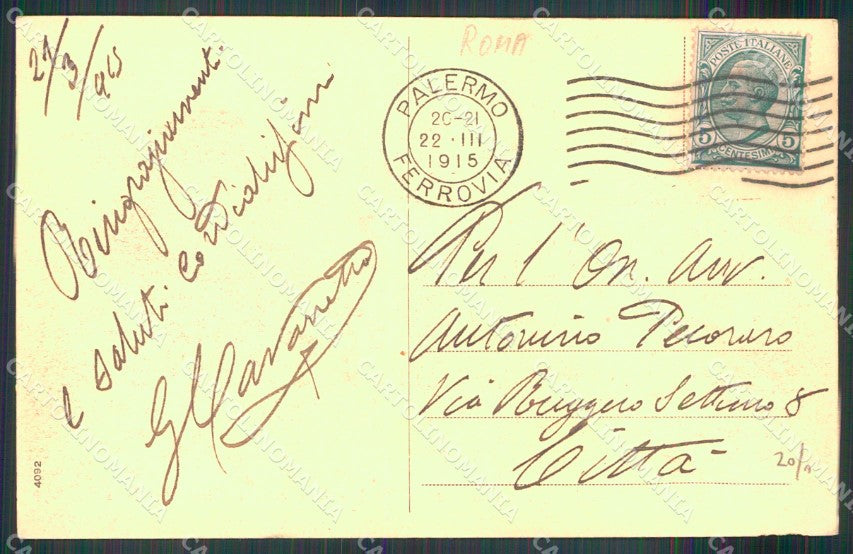 ROMA
21/3/915
Ringraziamenti
e saluti cordialissimi
PALERMO
20-21
22·III
1915
FERROVIA
POSTE ITALIANE
5 CENTESIMI 5
Per l'On. Avv.
Antonino Pecoraro
Via Ruggero Settimo 8
Città
4092
CARTOLINOMANIA